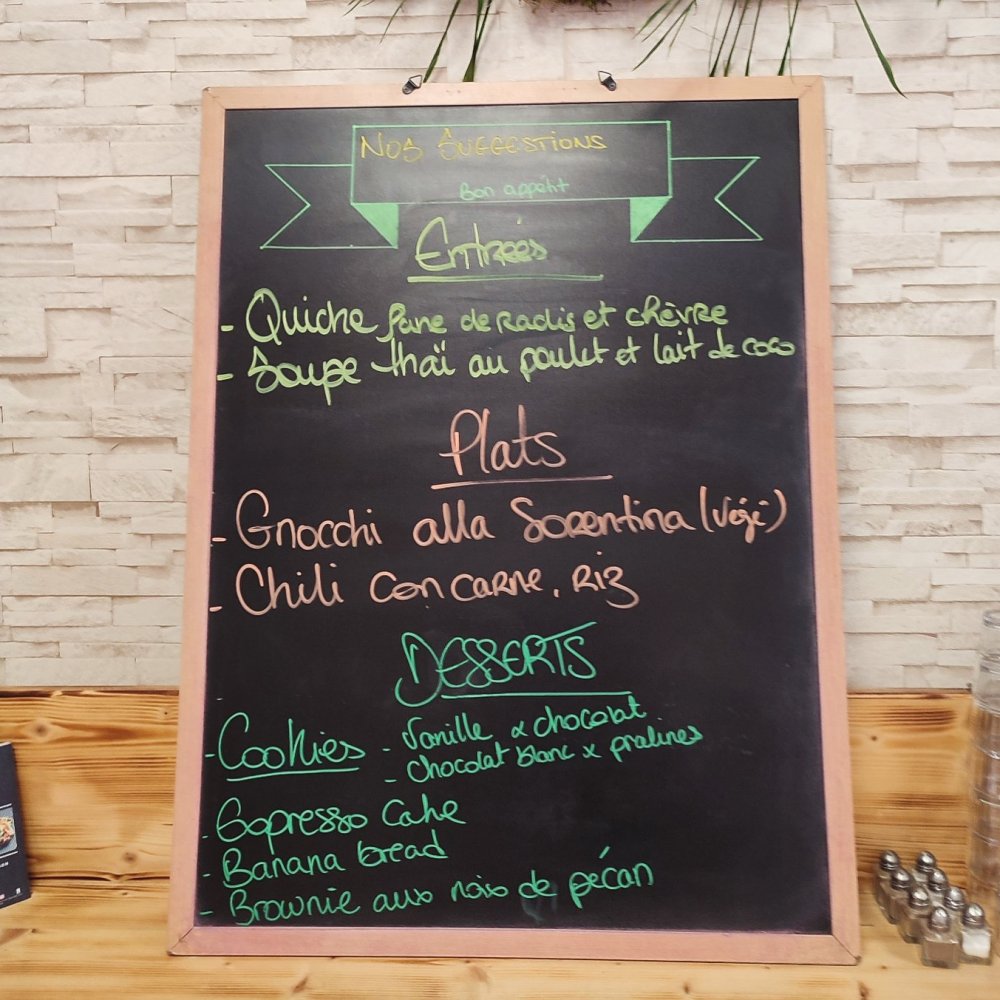 Nos Suggestions
Bon appétit
Entrées
- Quiche fane de Radis et chèvre
- Soupe thaï au poulet et lait de coco
Plats
- Gnocchi alla Sorentina (végé)
- Chili con carne, Riz
Desserts
- Cookies - Vanille x chocolat
- Chocolat blanc x pralines
- Espresso Cake
- Banana bread
- Brownie aux noix de pécan